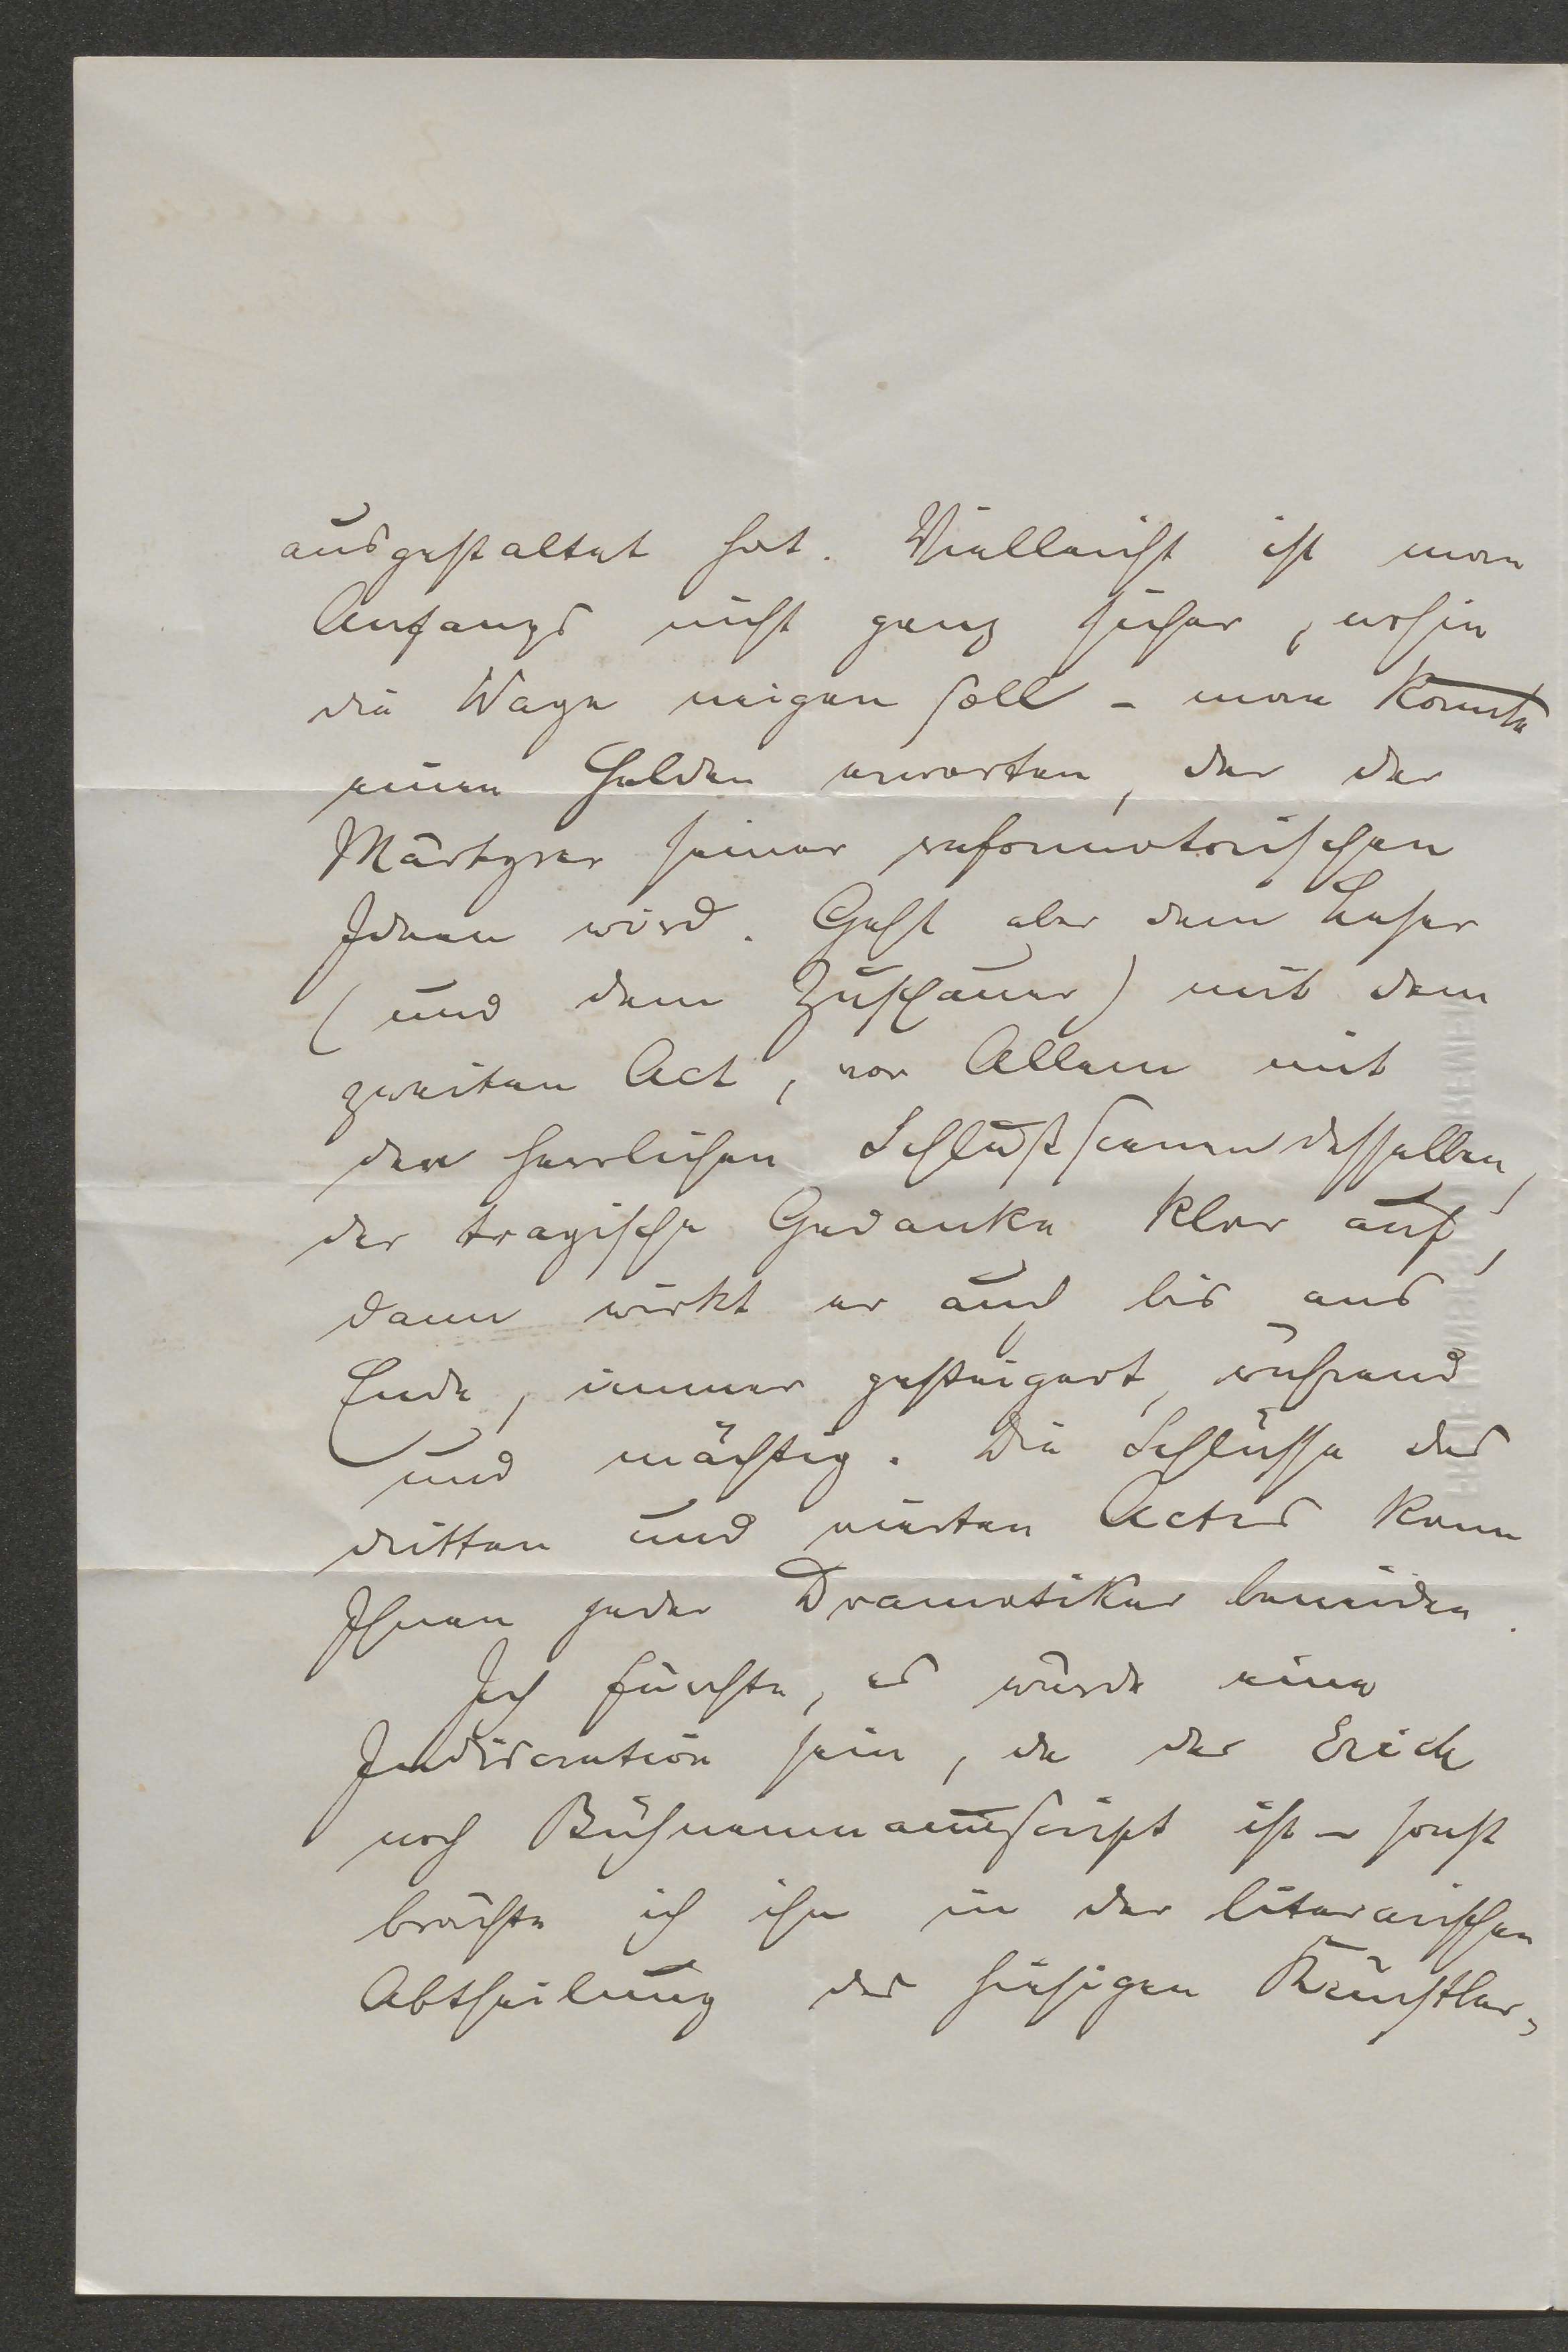 ausgestaltet hat. Vielleicht ist man
Anfangs nicht ganz sicher, wohin
die Wage neigen soll - man könnte
einen Helden erwarten, der der
Märtyrer seiner reformatorischen
Ideen wird. Geht aber dem Leser
(und dem Zuschauer) mit dem
zweiten Act, vor Allem mit
den herrlichen Schlußscenen desselben,
der tragische Gedanke klar auf,
dann wirkt er auch bis ans
Ende, immer gesteigert, rührend
und mächtig. Die Schlüsse des
dritten und vierten Actes kann
Ihnen jeder Dramatiker beneiden.
Ich fürchte, es würde eine
Indiscretion sein, da der Erich
noch Bühnenmanuscript ist - sonst
brächte ich ihn in der literarischen
Abtheilung der hiesigen Künstler-